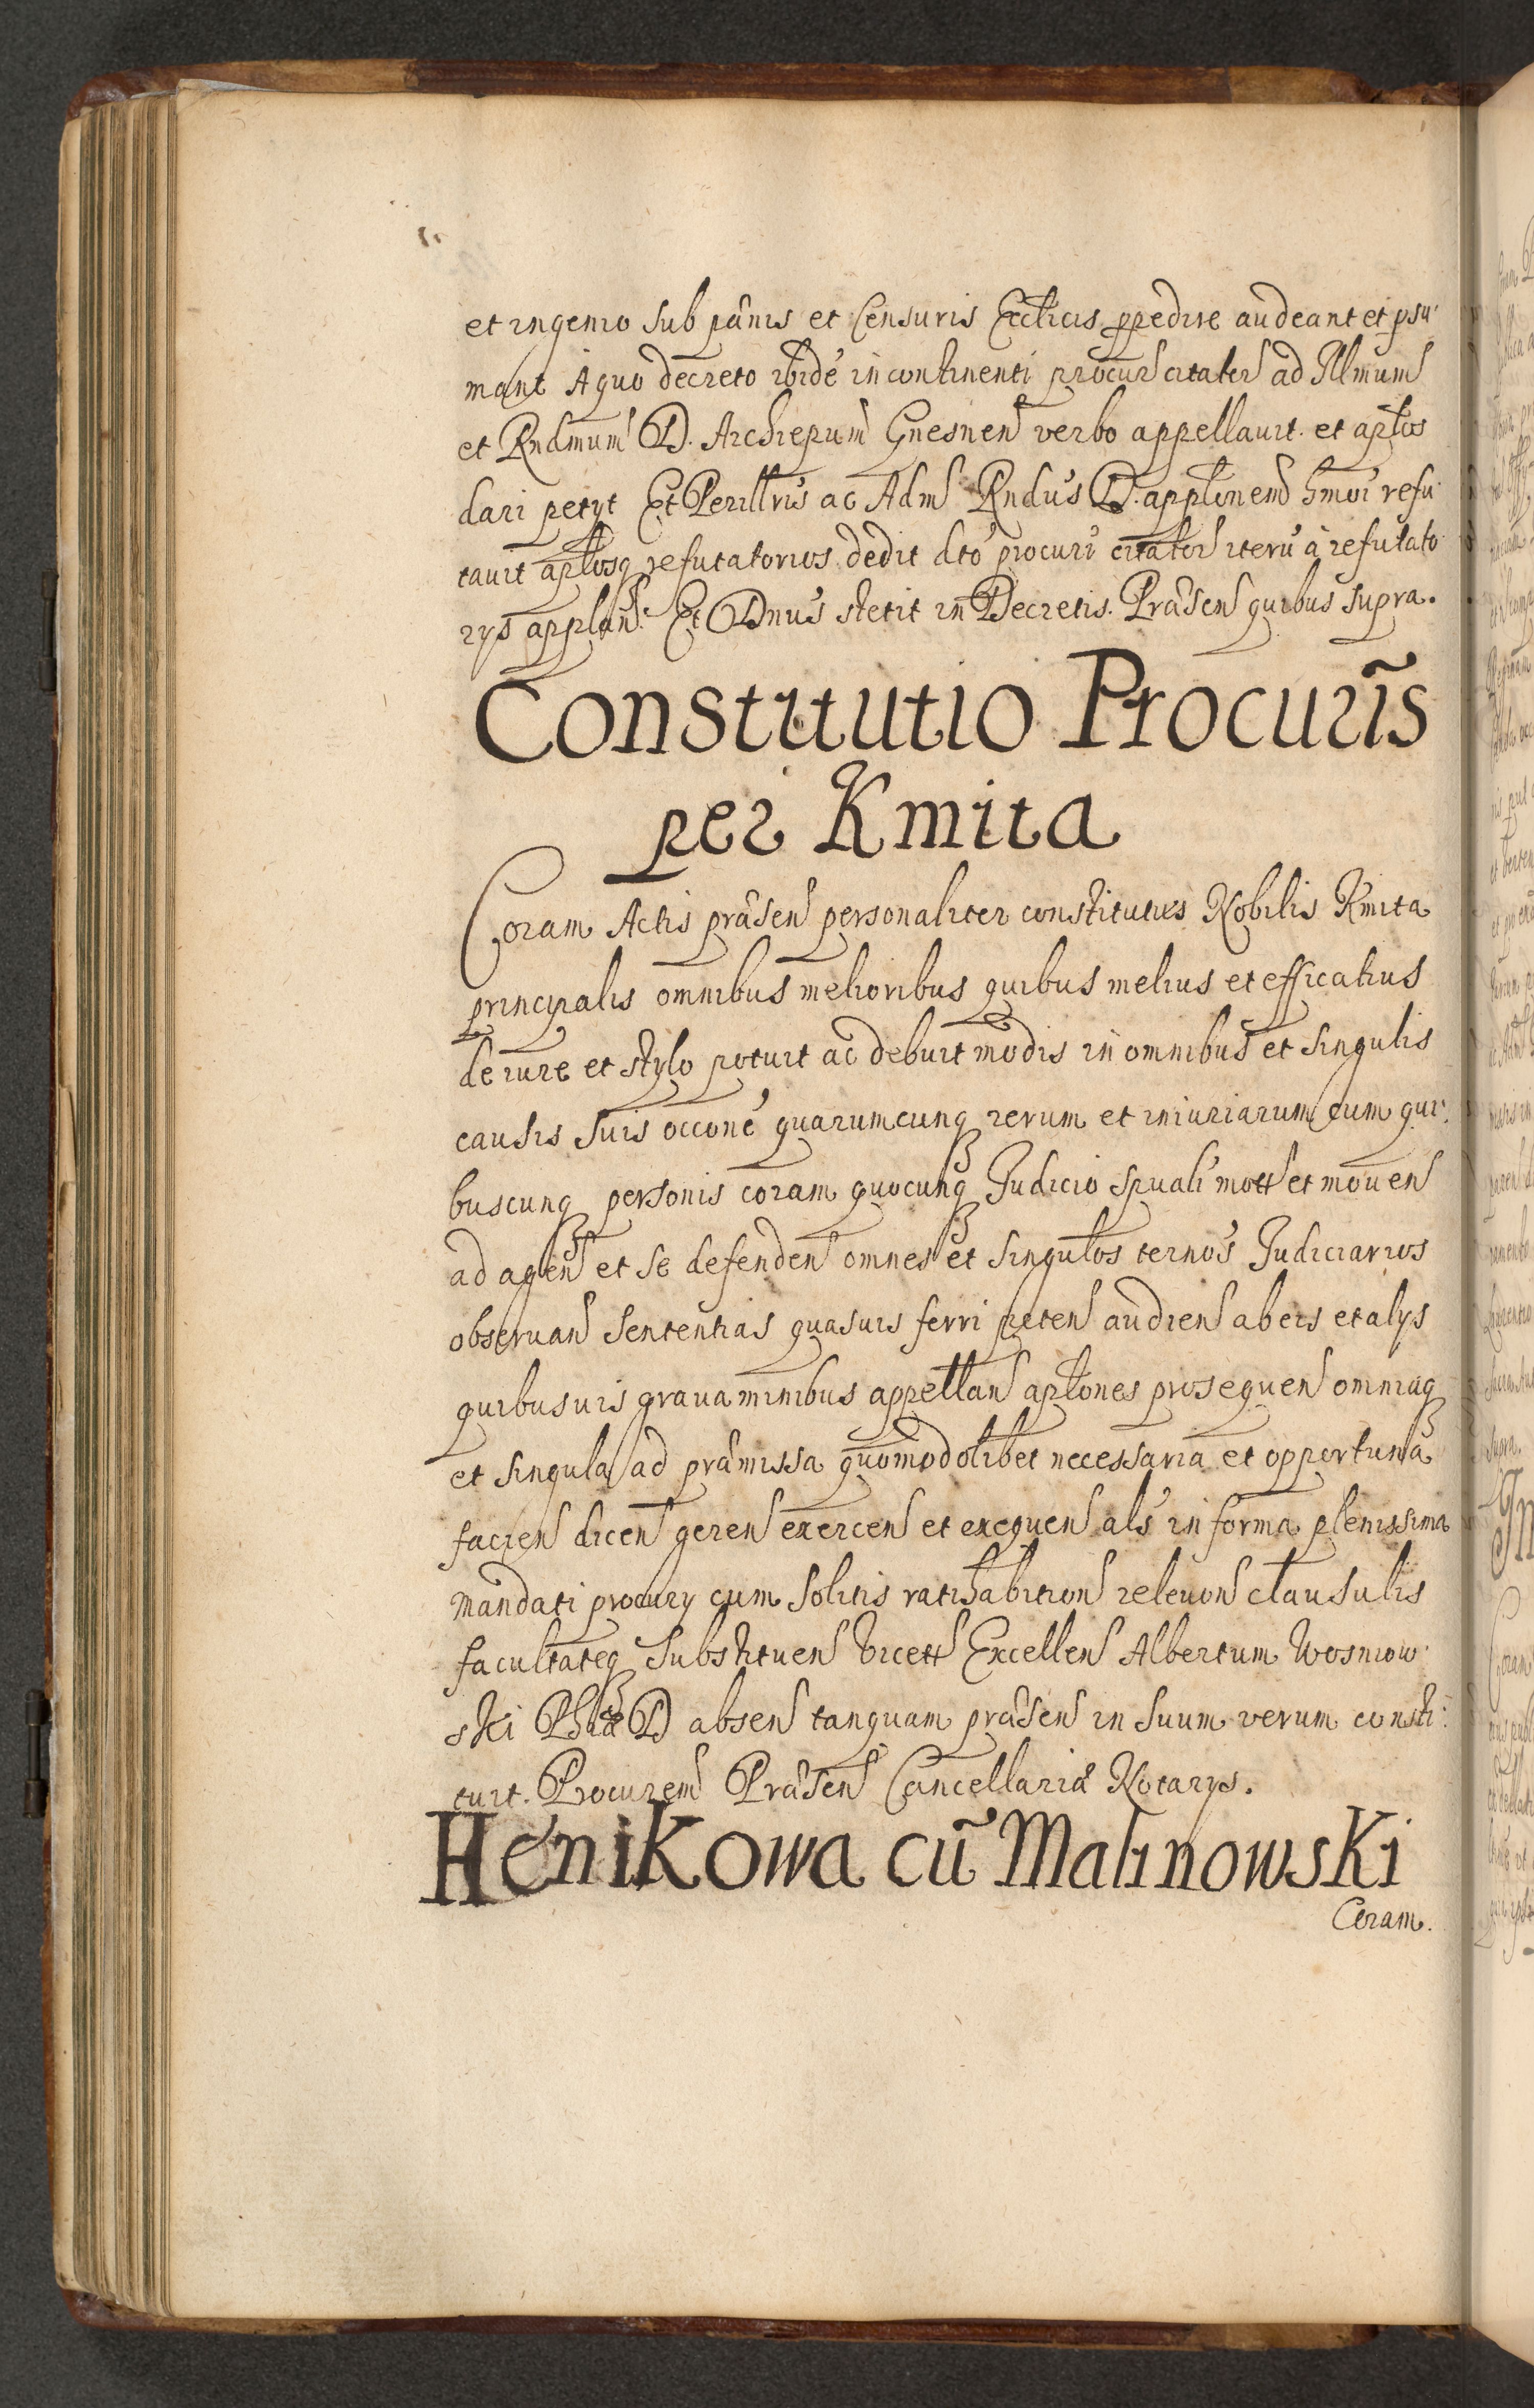 et ingenio sub pænis et Censuris Ecclicis ppedire audeant et psu¬
mant A quo decreto ibidé in continenti procur citator ad Illmum
et Rndmum D. Archiepum Gnesnen verbo appellavit et aptos
dari petyt Et Perilltris ac Adm Rndus D. applonem hmoi refu¬
tavit aptosq refutatorios dedit dto procuri citator iterú à refutato¬
rys applan. Et Dnus stetit in Decretis. Præsen quibus supra.
Constitutio Procurĩs
per Kmita
Coram Actis præsen personaliter constitutus Nobilis Kmita
principalis omnibus melioribus quibus melius et efficatius
de iure et stylo potuit ac debuit modis in omnibus et singulis
causis suis occoné quarumcunq rerum et iniuriarum cum qui¬
buscunq personis coram quocunq Judicio spuali mott et moven
ad agen et se defenden omnes et singulos ternos Judiciarios
observan sententias quasvis ferri peten audien ab eis et alys
quibusvis gravaminibus appellan aplones prosequen omniaq
et singula ad præmissa quomodolibet necessaria et opportuna
facien dicen geren exercen et exequen als in forma plenissima
mandati procury cum solitis ratihabition relevon clausulis
facultateq substituen vicett Excellen Albertum Wosniow¬
ski Phiæ D absen tanquam præsen in suum verum consti¬
tuit. Procurem Præsen Cancellariæ Notarys.
Henikowa cũ Malinowski
Coram.